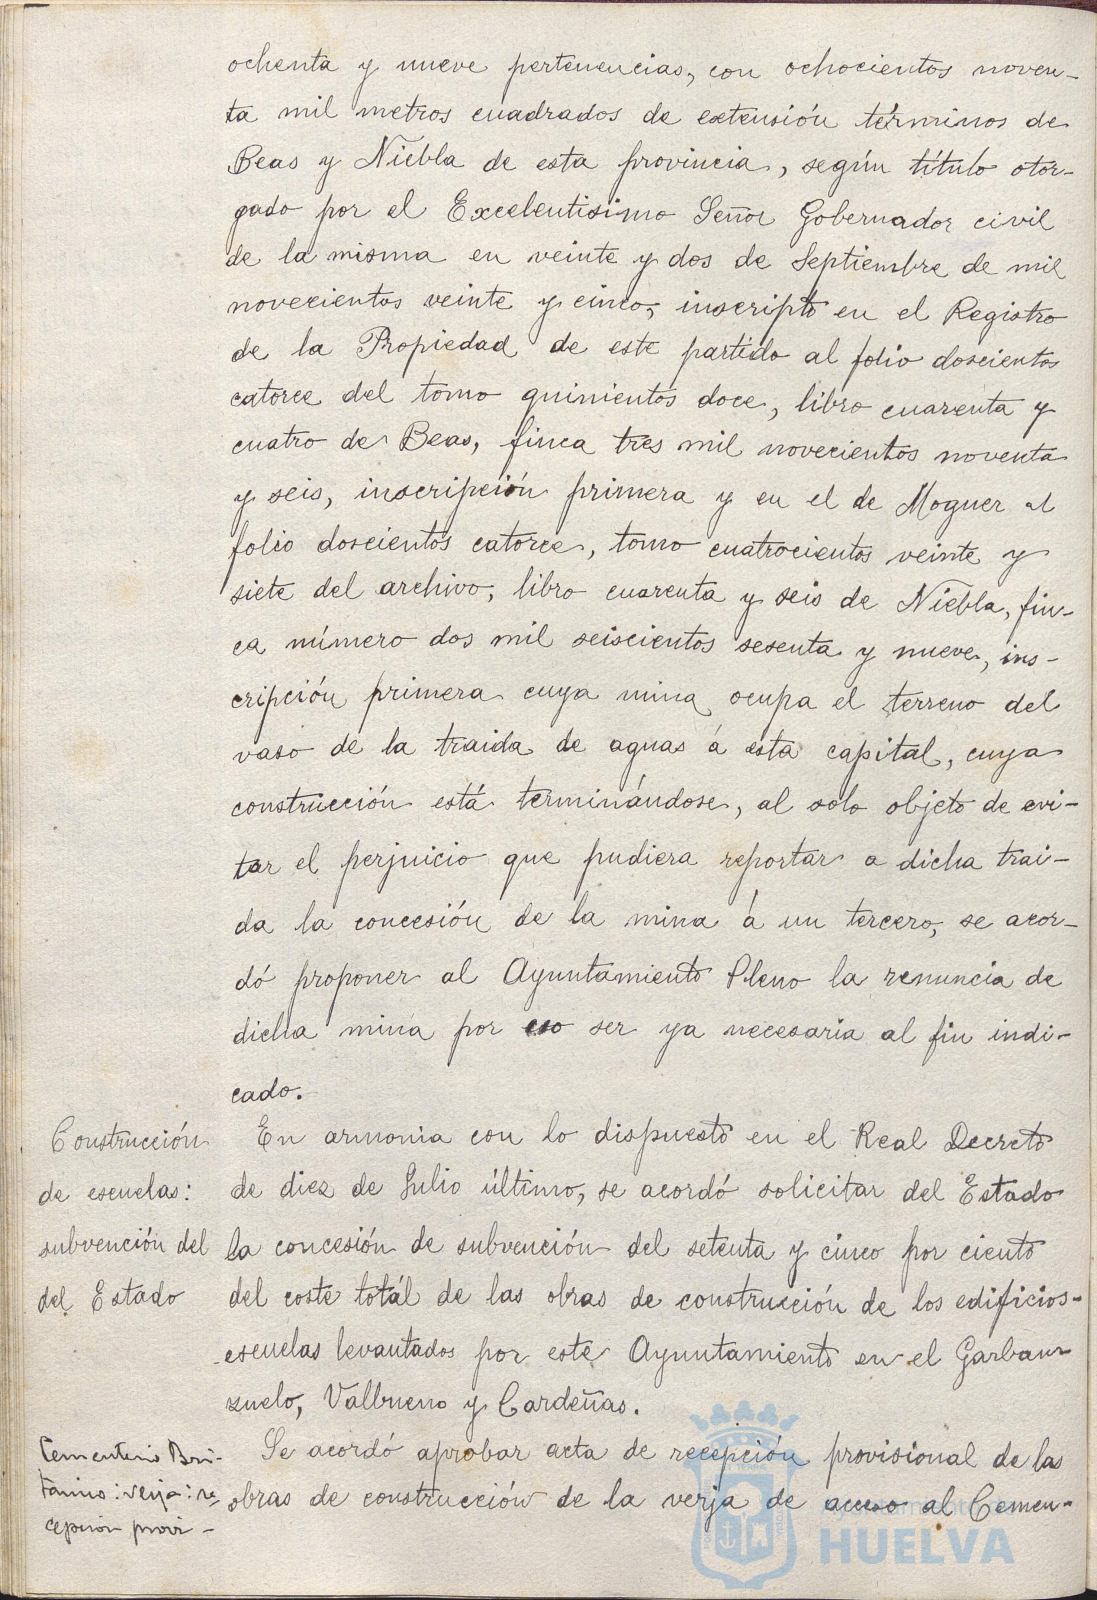 ochenta y nueve pertenencias, con ochocientos noven-
ta mil metros cuadrados de extensión términos de
Beas y Niebla de esta provincia, según título otor-
gado por el Excelentisimo Señor Gobernador civil
de la misma en veinte y dos de Septiembre de mil
novecientos veinte y cinco, inscripto en el Registro
de la Propiedad de este partido al folio doscientos
catorce del tomo quinientos doce, libro cuarenta y
cuatro de Beas, finca tres mil novecientos noventa
y seis, inscripción primera y en el de Moguer al
folio doscientos catorce, tomo cuatrocientos veinte y
siete del archivo, libro cuarenta y seis de Niebla, fin-
ca número dos mil seiscientos sesenta y nueve, ins-
cripción primera cuya mina ocupa el terreno del
vaso de la traida de aguas á esta capital, cuya
construcción está terminándose, al solo objeto de evi-
tar el perjuicio que pudiera reportar a dicha trai-
da la concesión de la mina á un tercero, se acor-
dó proponer al Ayuntamiento Pleno la renuncia de
dicha mina por no ser ya necesaria al fin indi-
cado.
Construcción
de escuelas:
subvención del
del Estado
En armonia con lo dispuesto en el Real Decreto
de diez de Julio último, se acordó solicitar del Estado
la concesión de subvención del setenta y cinco por ciento
del coste totál de las obras de construcción de los edificios-
escuelas levantados por este Ayuntamiento en el Garban-
zuelo, Valbueno y Cardeñas.
Cementerio Bri-
tánico: verja: re-
cepción provi-
Se acordó aprobar acta de recepción provisional de las
obras de construcción de la verja de acceso al Cemen-
Ayuntamiento de
HUELVA